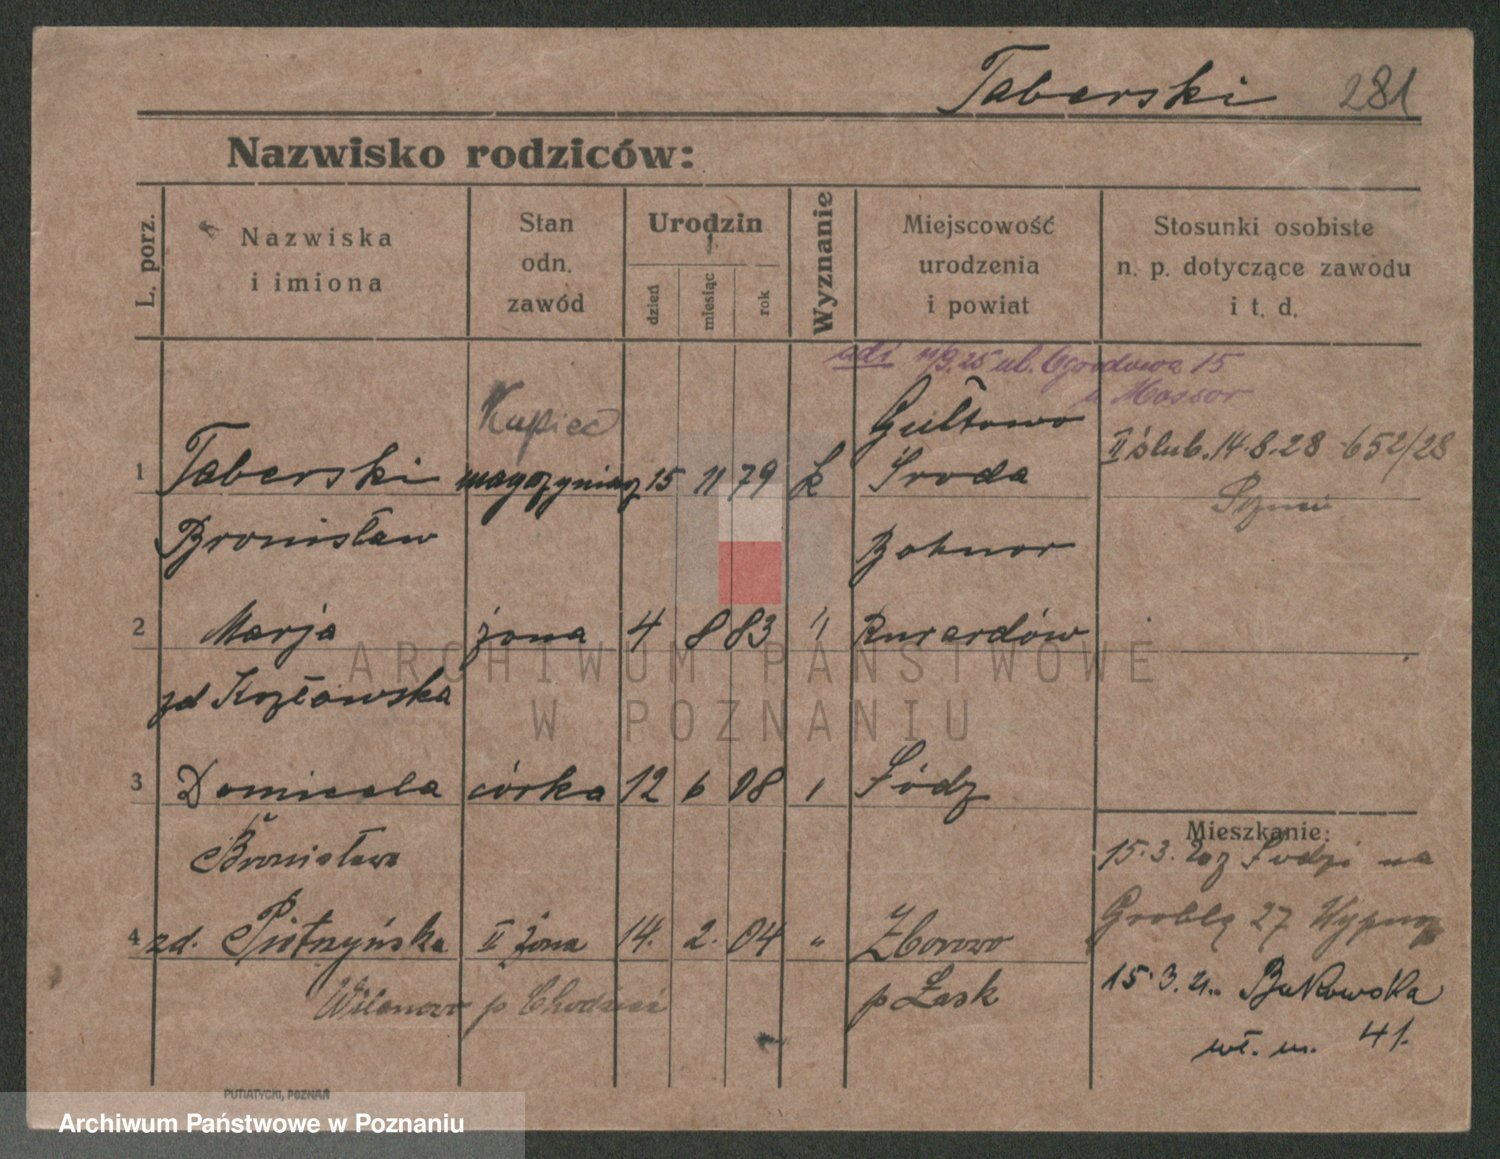 Taberski 281
Nazwisko rodziców:
L. porz.
Nazwiska
i imiona
Stan
odn.
zawód
Urodzin
dzień
miesiąc
rok
Wyznanie
Miejscowość
urodzenia
i powiat
Stosunki osobiste
n. p. dotyczące zawodu
i t. d.
adi 11/9.25 ul. Ogrodowa 15
u Mossor
Kupiec Gułtowo
1 Taberski magazynier 15 11 79 k Środa II ślub. 14.8.28 652/28
Bronisław
2 Marja żona 4 8 83 " Rurardów
zd Kozłowska
3 Domicela córka 12 6 08 " Łódz
Mieszkanie:
Bronisława 15.3.20 z Łodzi na
Groblą 27
4 zd. Piotrzyńska II żona 14. 2. 04 " Zborowo
Wilanowo p Chodzież p Łask 15.3.21. Bukowska
wł. m. 41.
PUTIATYCKI, POZNAŃ
ARCHIWUM PAŃSTWOWE
W POZNANIU
Archiwum Państwowe w Poznaniu